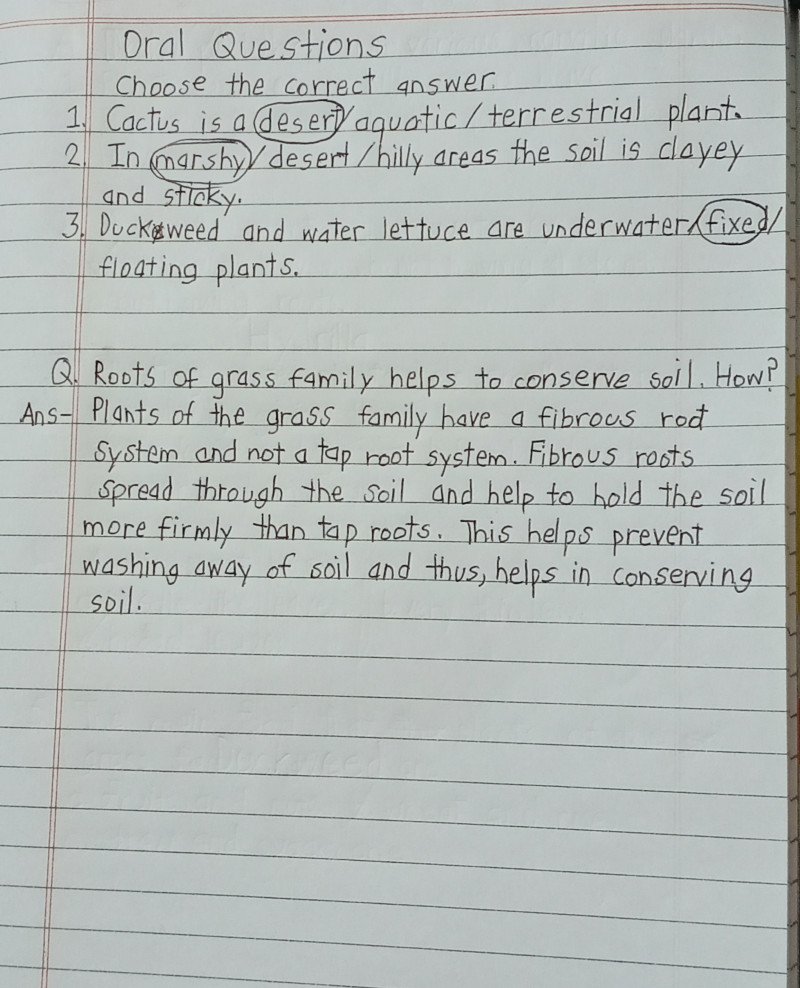 Oral Questions
Choose the correct answer.
1. Cactus is a desert/aquatic/terrestrial plant.
2. In marshy/desert/hilly areas the soil is clayey
and sticky.
3. Duckweed and water lettuce are underwater/fixed/
floating plants.
Q. Roots of grass family helps to conserve soil. How?
Ans- Plants of the grass family have a fibrous root
system and not a tap root system. Fibrous roots
spread through the soil and help to hold the soil
more firmly than tap roots. This helps prevent
washing away of soil and thus, helps in conserving
soil.